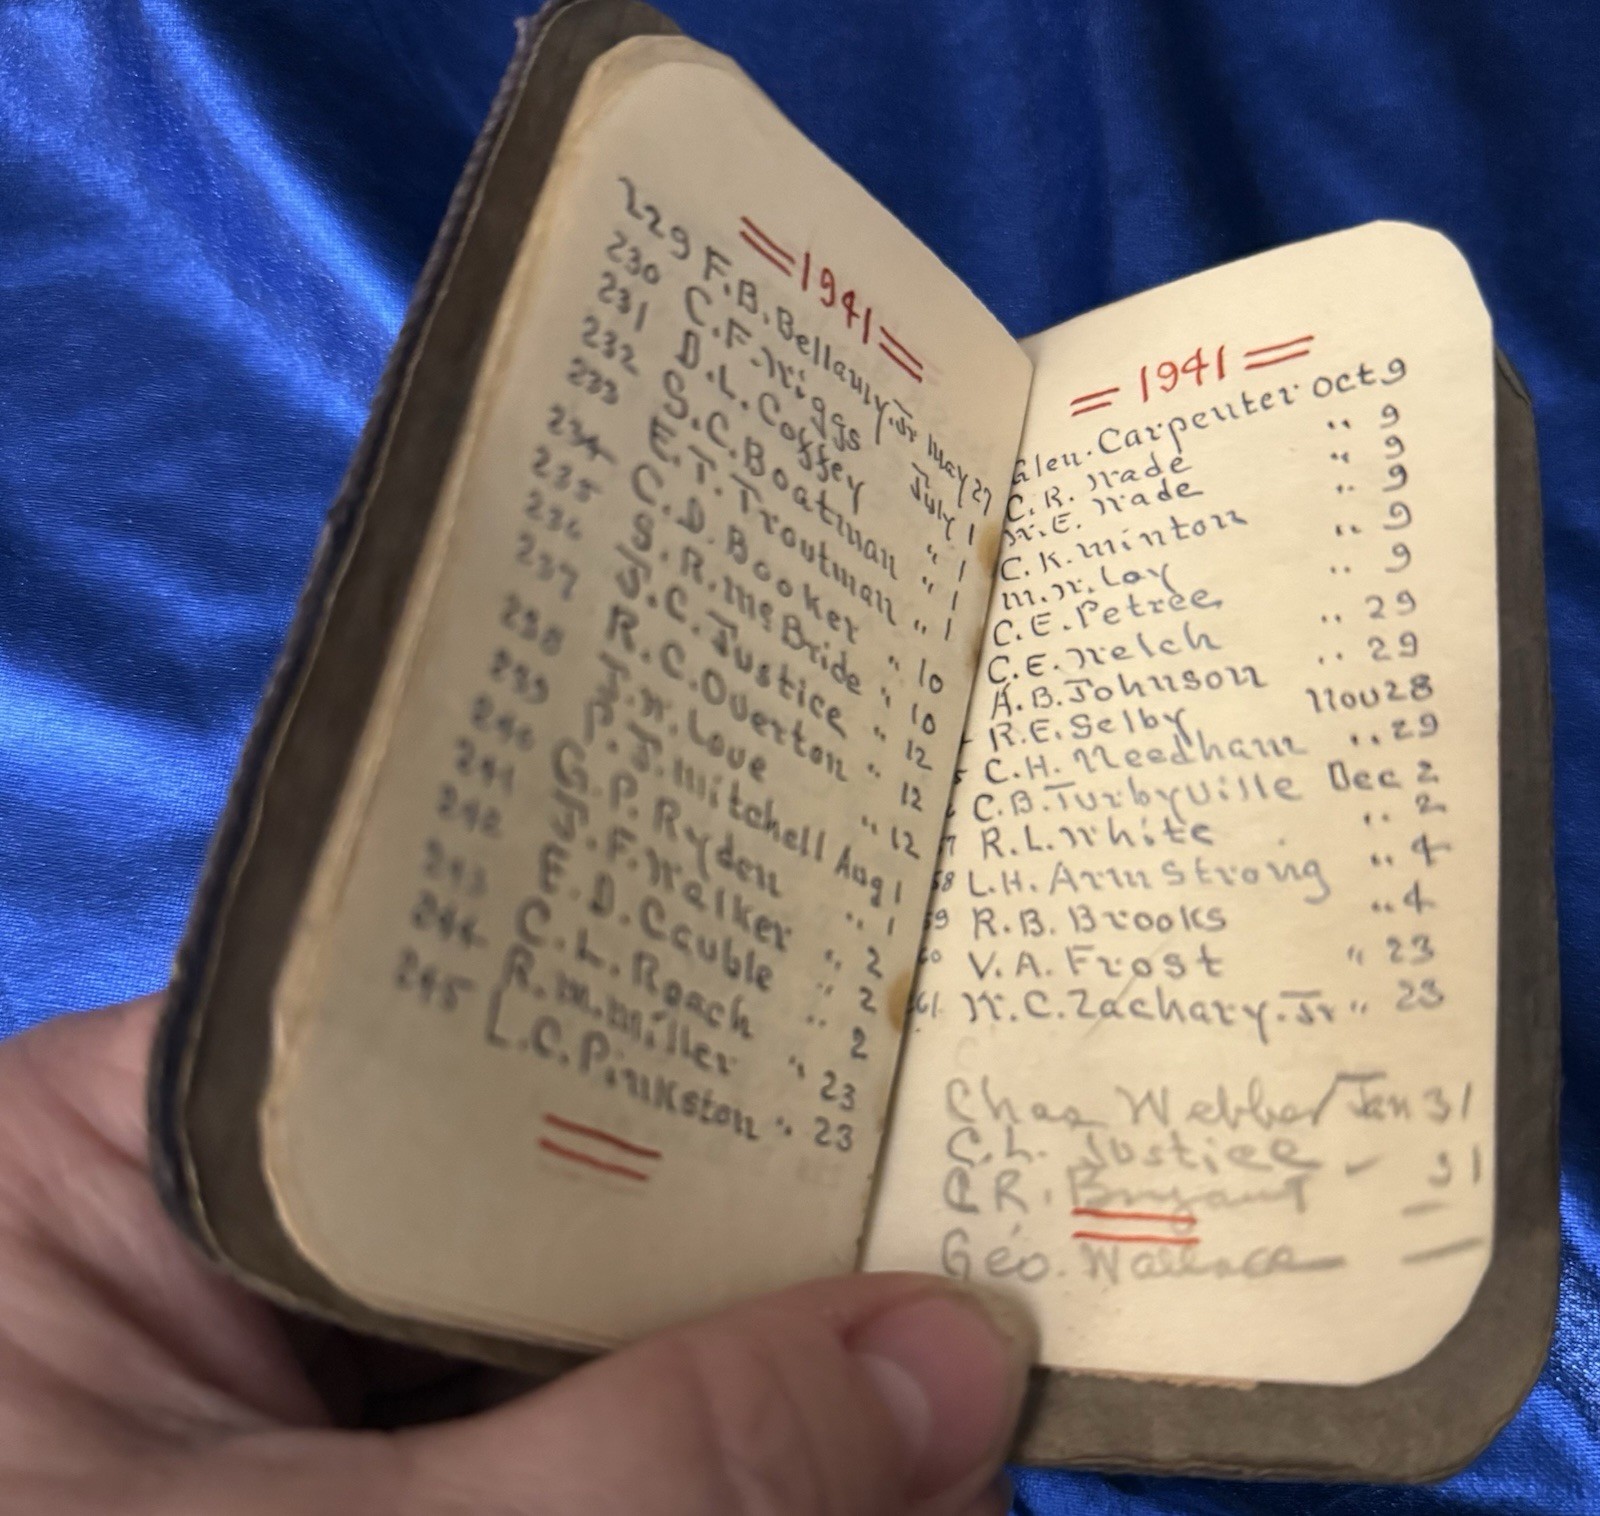 = 1941 =
229 F.B. Bellamy. Jr May 27
230 C.F. Wiggs July 1
231 D.L. Coffey " 1
232 S.C. Boatman " 1
233 E.T. Troutman " 1
234 C.D. Booker " 10
235 S.R. McBride " 10
236 S.C. Justice " 12
237 R.C. Overton " 12
238 J.W. Love " 12
239 P.J. Mitchell Aug 1
240 G.P. Ryden " 1
241 J.F. Walker " 2
242 E.D. Cauble " 2
243 C.L. Roach " 2
244 R.M. Miller " 23
245 L.C. Pinkston " 23
= 1941 =
Glen. Carpenter Oct 9
C.R. Wade " 9
W.E. Wade " 9
C.K. Minton " 9
M.W. Loy " 9
C.E. Petree " 9
C.E. Welch " 29
A.B. Johnson " 29
R.E. Selby Nov 28
C.H. Needham " 29
C.B. Turbyville Dec 2
7 R.L. White " 2
58 L.H. Armstrong " 4
59 R.B. Brooks " 4
60 V.A. Frost " 23
261 W.C. Zachary. Jr " 23
Chas Webber Jan 31
C.L. Justice 31
R. Bryant
Geo. Wallace